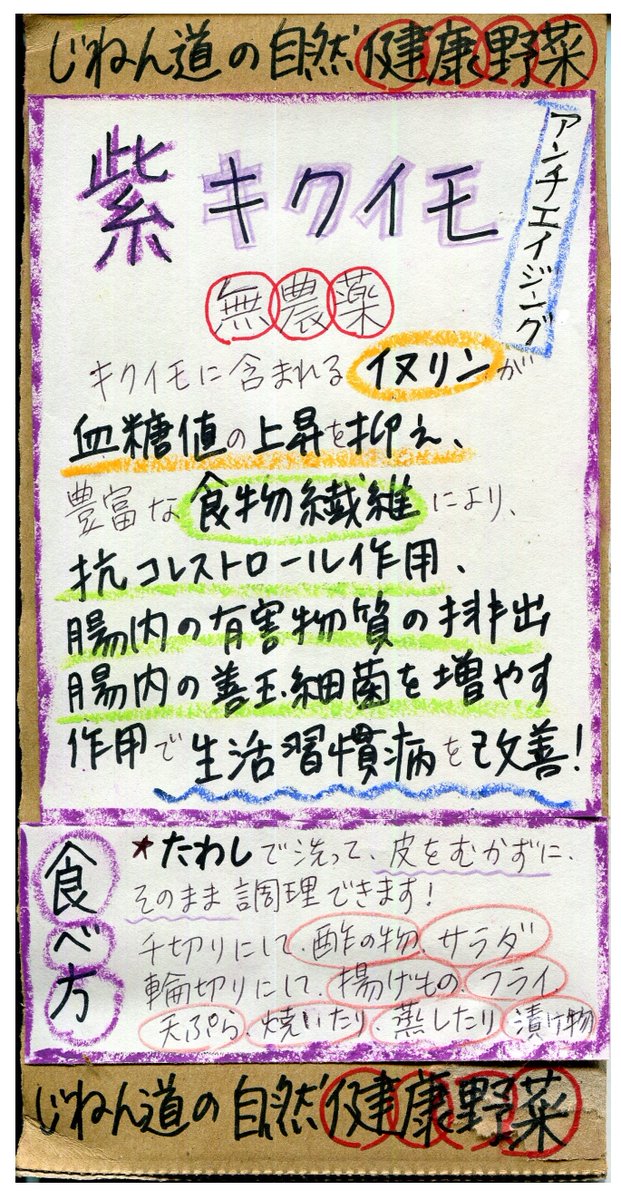 じねん道の自然健康野菜
紫キクイモ
アンチエイジング
無農薬
キクイモに含まれるイヌリンが
血糖値の上昇を抑え、
豊富な食物繊維により、
抗コレストロール作用、
腸内の有害物質の排出
腸内の善玉細菌を増やす
作用で生活習慣病を改善!
食べ方
★たわしで洗って、皮をむかずに、
そのまま調理できます!
千切りにして、酢の物、サラダ
輪切りにして、揚げもの、フライ、
天ぷら、焼いたり、蒸したり、漬け物
じねん道の自然健康野菜